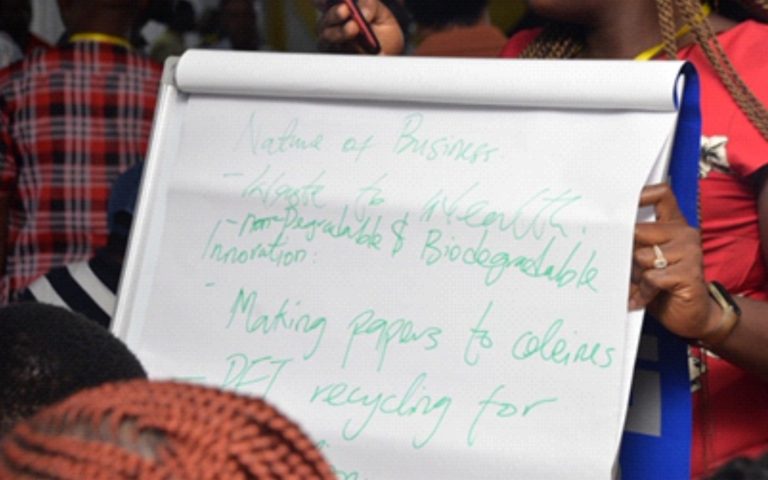 Nature of Business
- Waste to Wealth.
- non-Degradable & Biodegradable
Innovation:
-
Making papers to
- PET recycling for